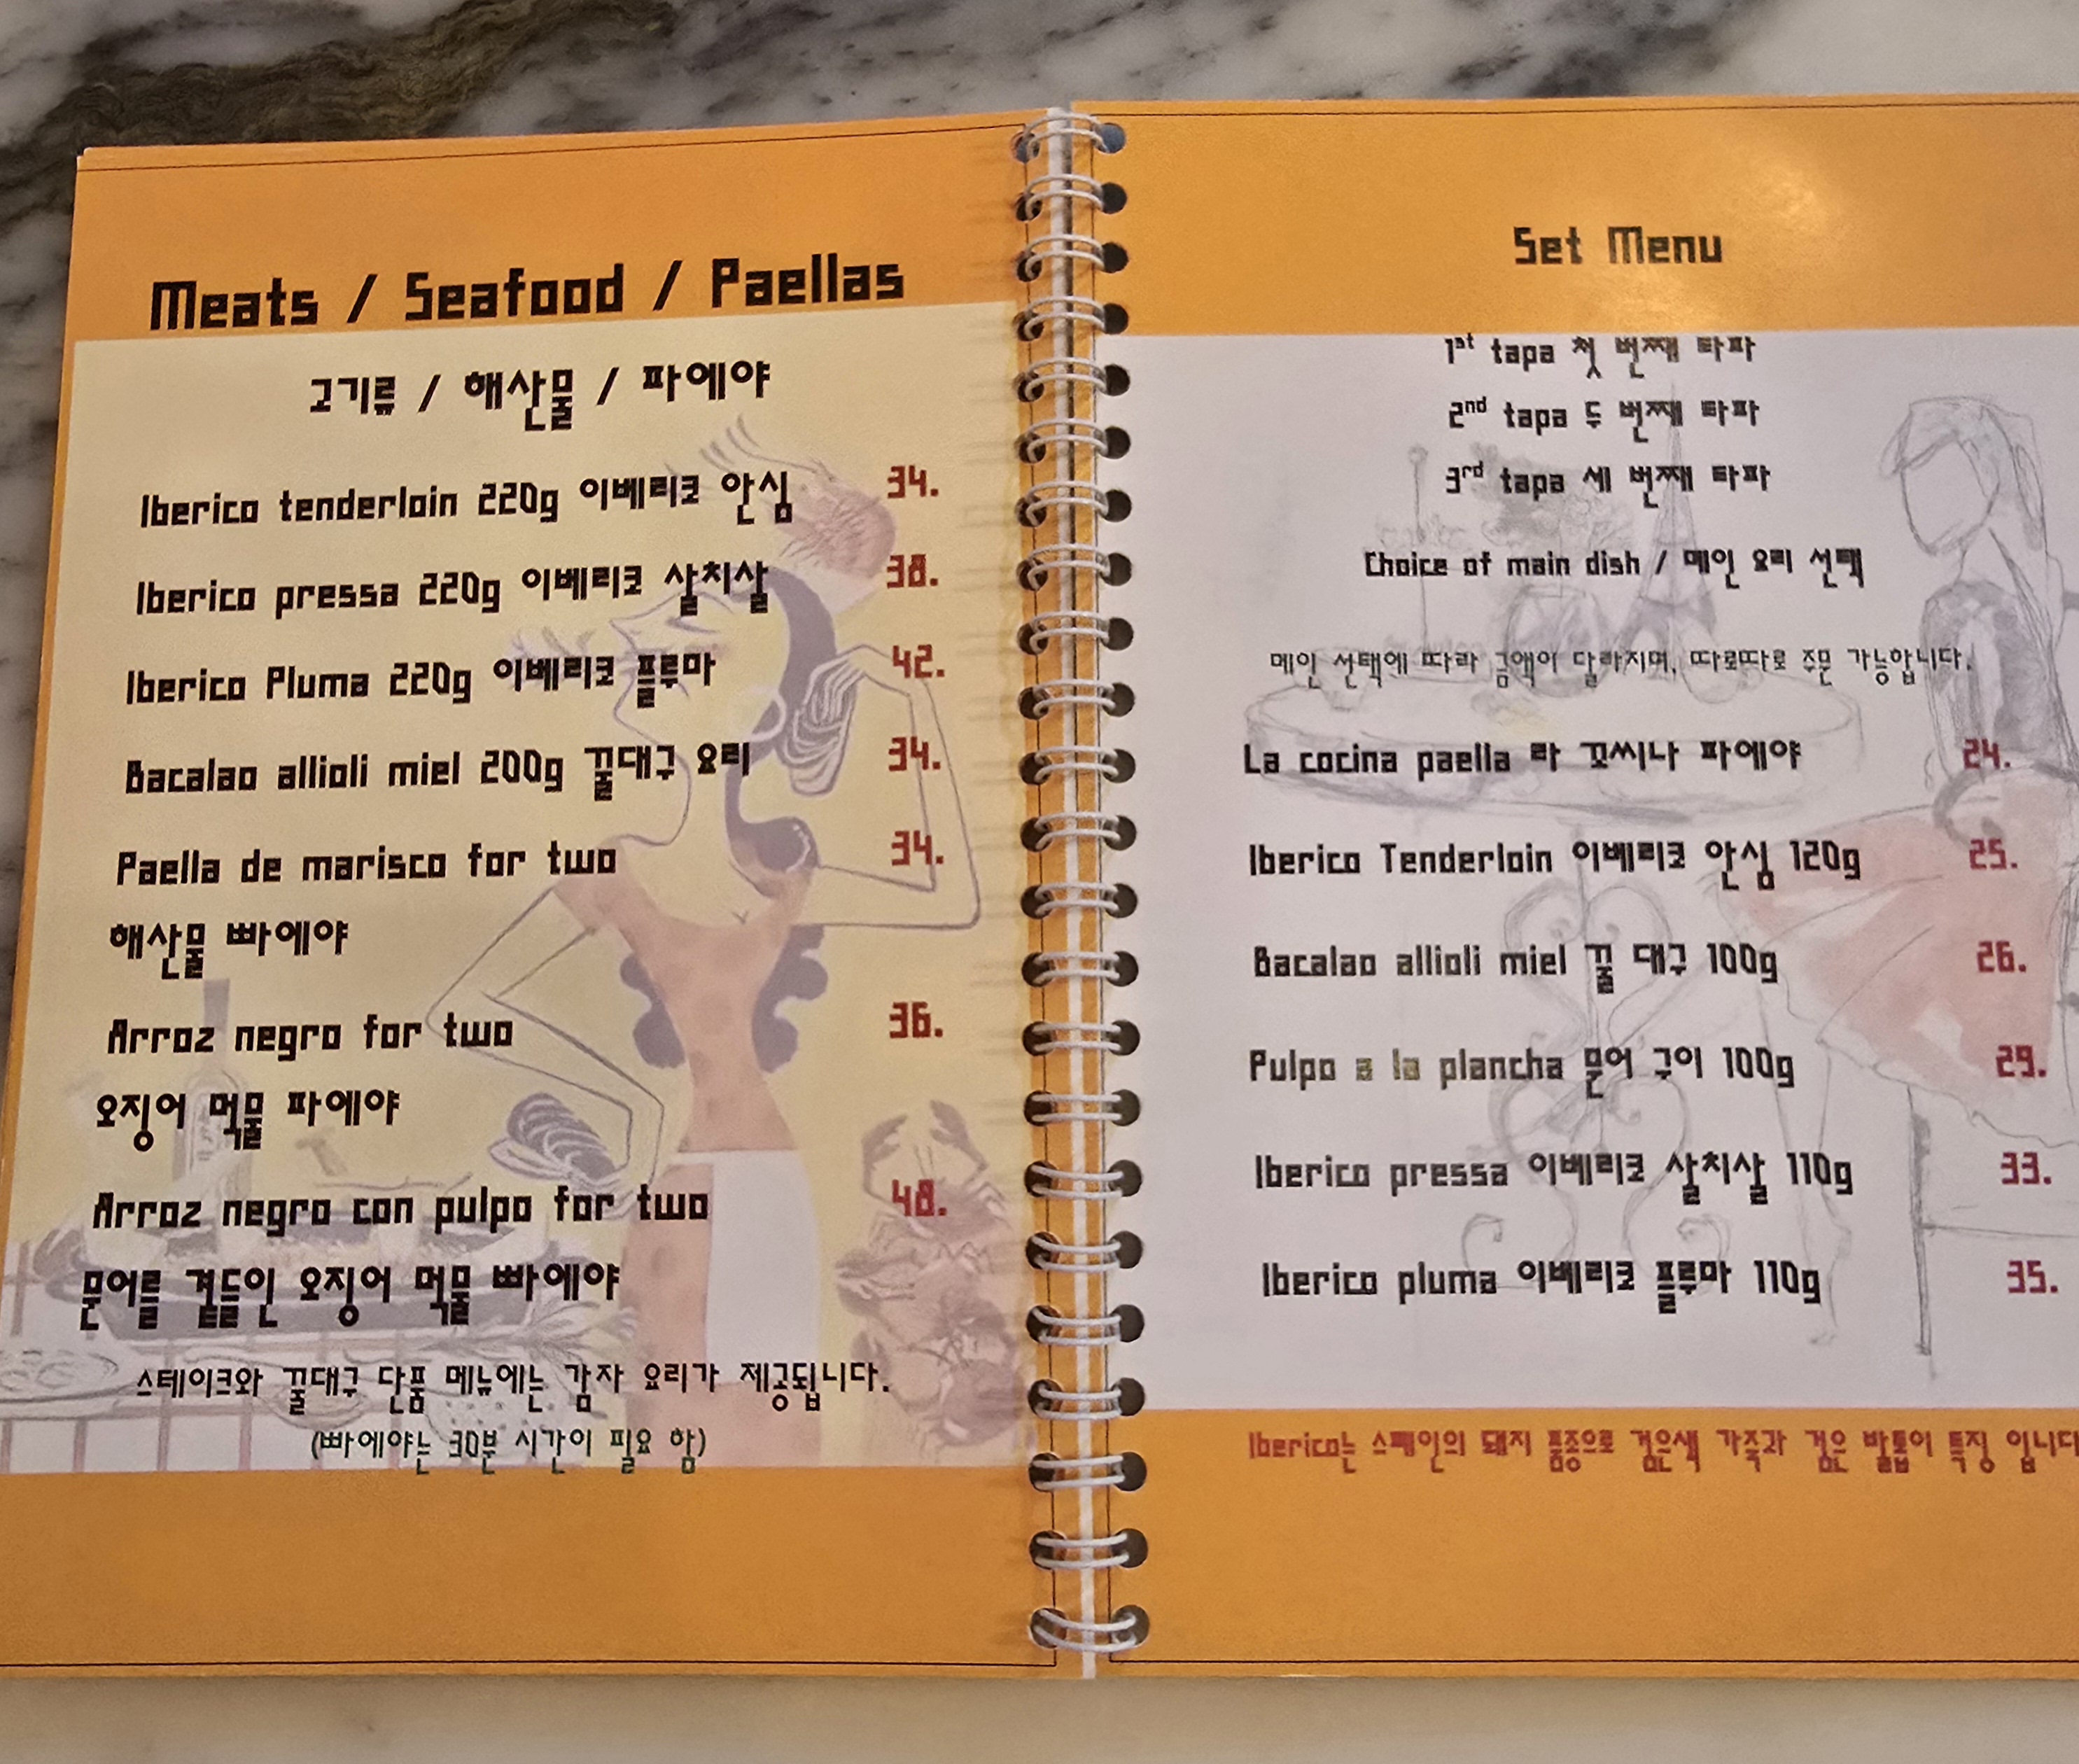 Meats / Seafood / Paellas
고기류 / 해산물 / 파에야
Iberico tenderloin 220g 이베리코 안심 34.
Iberico pressa 220g 이베리코 살치살 38.
Iberico Pluma 220g 이베리코 플루마 42.
Bacalao allioli miel 200g 꿀대구 요리 34.
Paella de marisco for two 34.
해산물 빠에야
Arroz negro for two 36.
오징어 먹물 파에야
Arroz negro con pulpo for two 48.
문어를 곁들인 오징어 먹물 빠에야
스테이크와 꿀대구 단품 메뉴에는 감자 요리가 제공됩니다.
(빠에야는 30분 시간이 필요 함)
Set Menu
1st tapa 첫 번째 타파
2nd tapa 두 번째 타파
3rd tapa 세 번째 타파
Choice of main dish / 메인 요리 선택
메인 선택에 따라 금액이 달라지며, 따로따로 주문 가능합니다.
La cocina paella 라 꼬씨나 파에야 24.
Iberico Tenderloin 이베리코 안심 120g 25.
Bacalao allioli miel 꿀 대구 100g 26.
Pulpo a la plancha 문어 구이 100g 29.
Iberico pressa 이베리코 살치살 110g 33.
Iberico pluma 이베리코 플루마 110g 35.
Iberico는 스페인의 돼지 품종으로 검은색 가죽과 검은 발톱이 특징 입니다